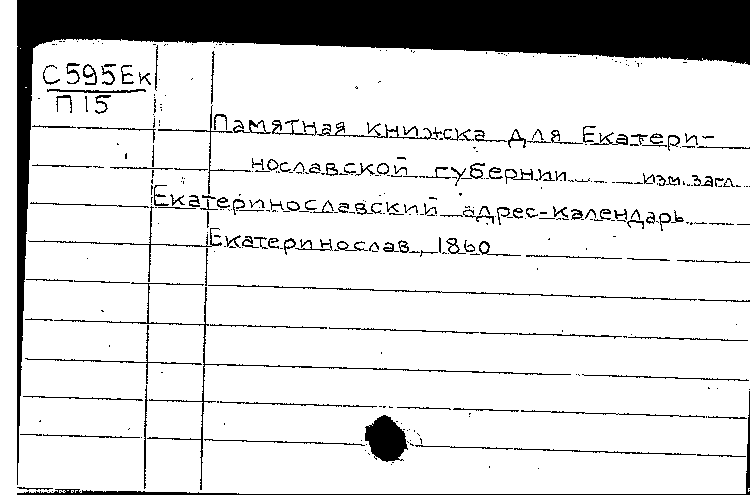 С595Ек
П15
Памятная книжска для Екатери-
нославской губернии изм. загл.
Екатеринославский адрес-календарь
Екатеринослав, 1860